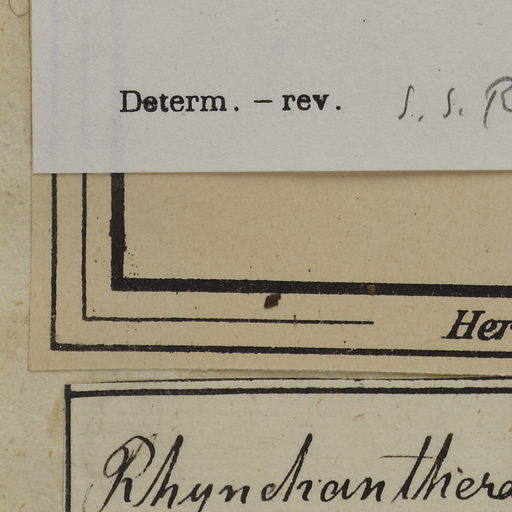 Determ. – rev. S. S. R
Her
Rhynchanthera